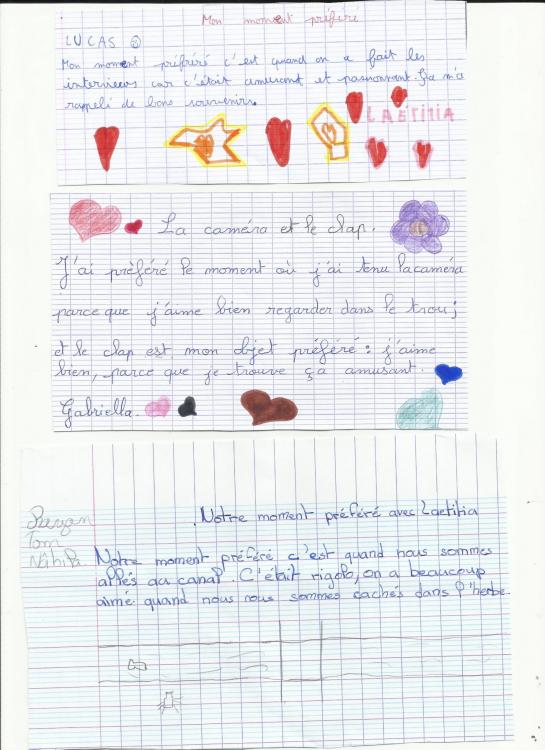 Mon moment préféré
LUCAS
Mon moment préféré c'est quand on a fait les
interviews car c'était amusant et passionnant. Ça m'a
rappelé de bons souvenirs.
LAETITIA
La caméra et le clap.
J'ai préféré le moment où j'ai tenu la caméra
parce que j'aime bien regarder dans le trou ;
et le clap est mon objet préféré : j'aime
bien, parce que je trouve ça amusant.
Gabriella.
Notre moment préféré avec Laetitia
Tom
Notre moment préféré c'est quand nous sommes
allés au canal. C'était rigolo, on a beaucoup
aimé quand nous nous sommes cachés dans l'herbe.